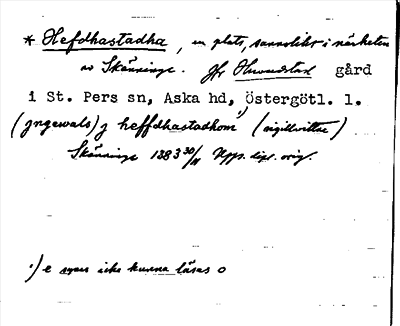 * Hefdhastadha, en plats, sannolikt i närheten
av Skänninge. Jfr Huvudstad gård
i St. Pers sn, Aska hd, Östergötl. l.
(jngewals) j heffdhastadhom¹) (sigillvittne)
Skänninge 1383 30/11 Upps. dipl. orig.
¹) e synes icke kunna läsas o